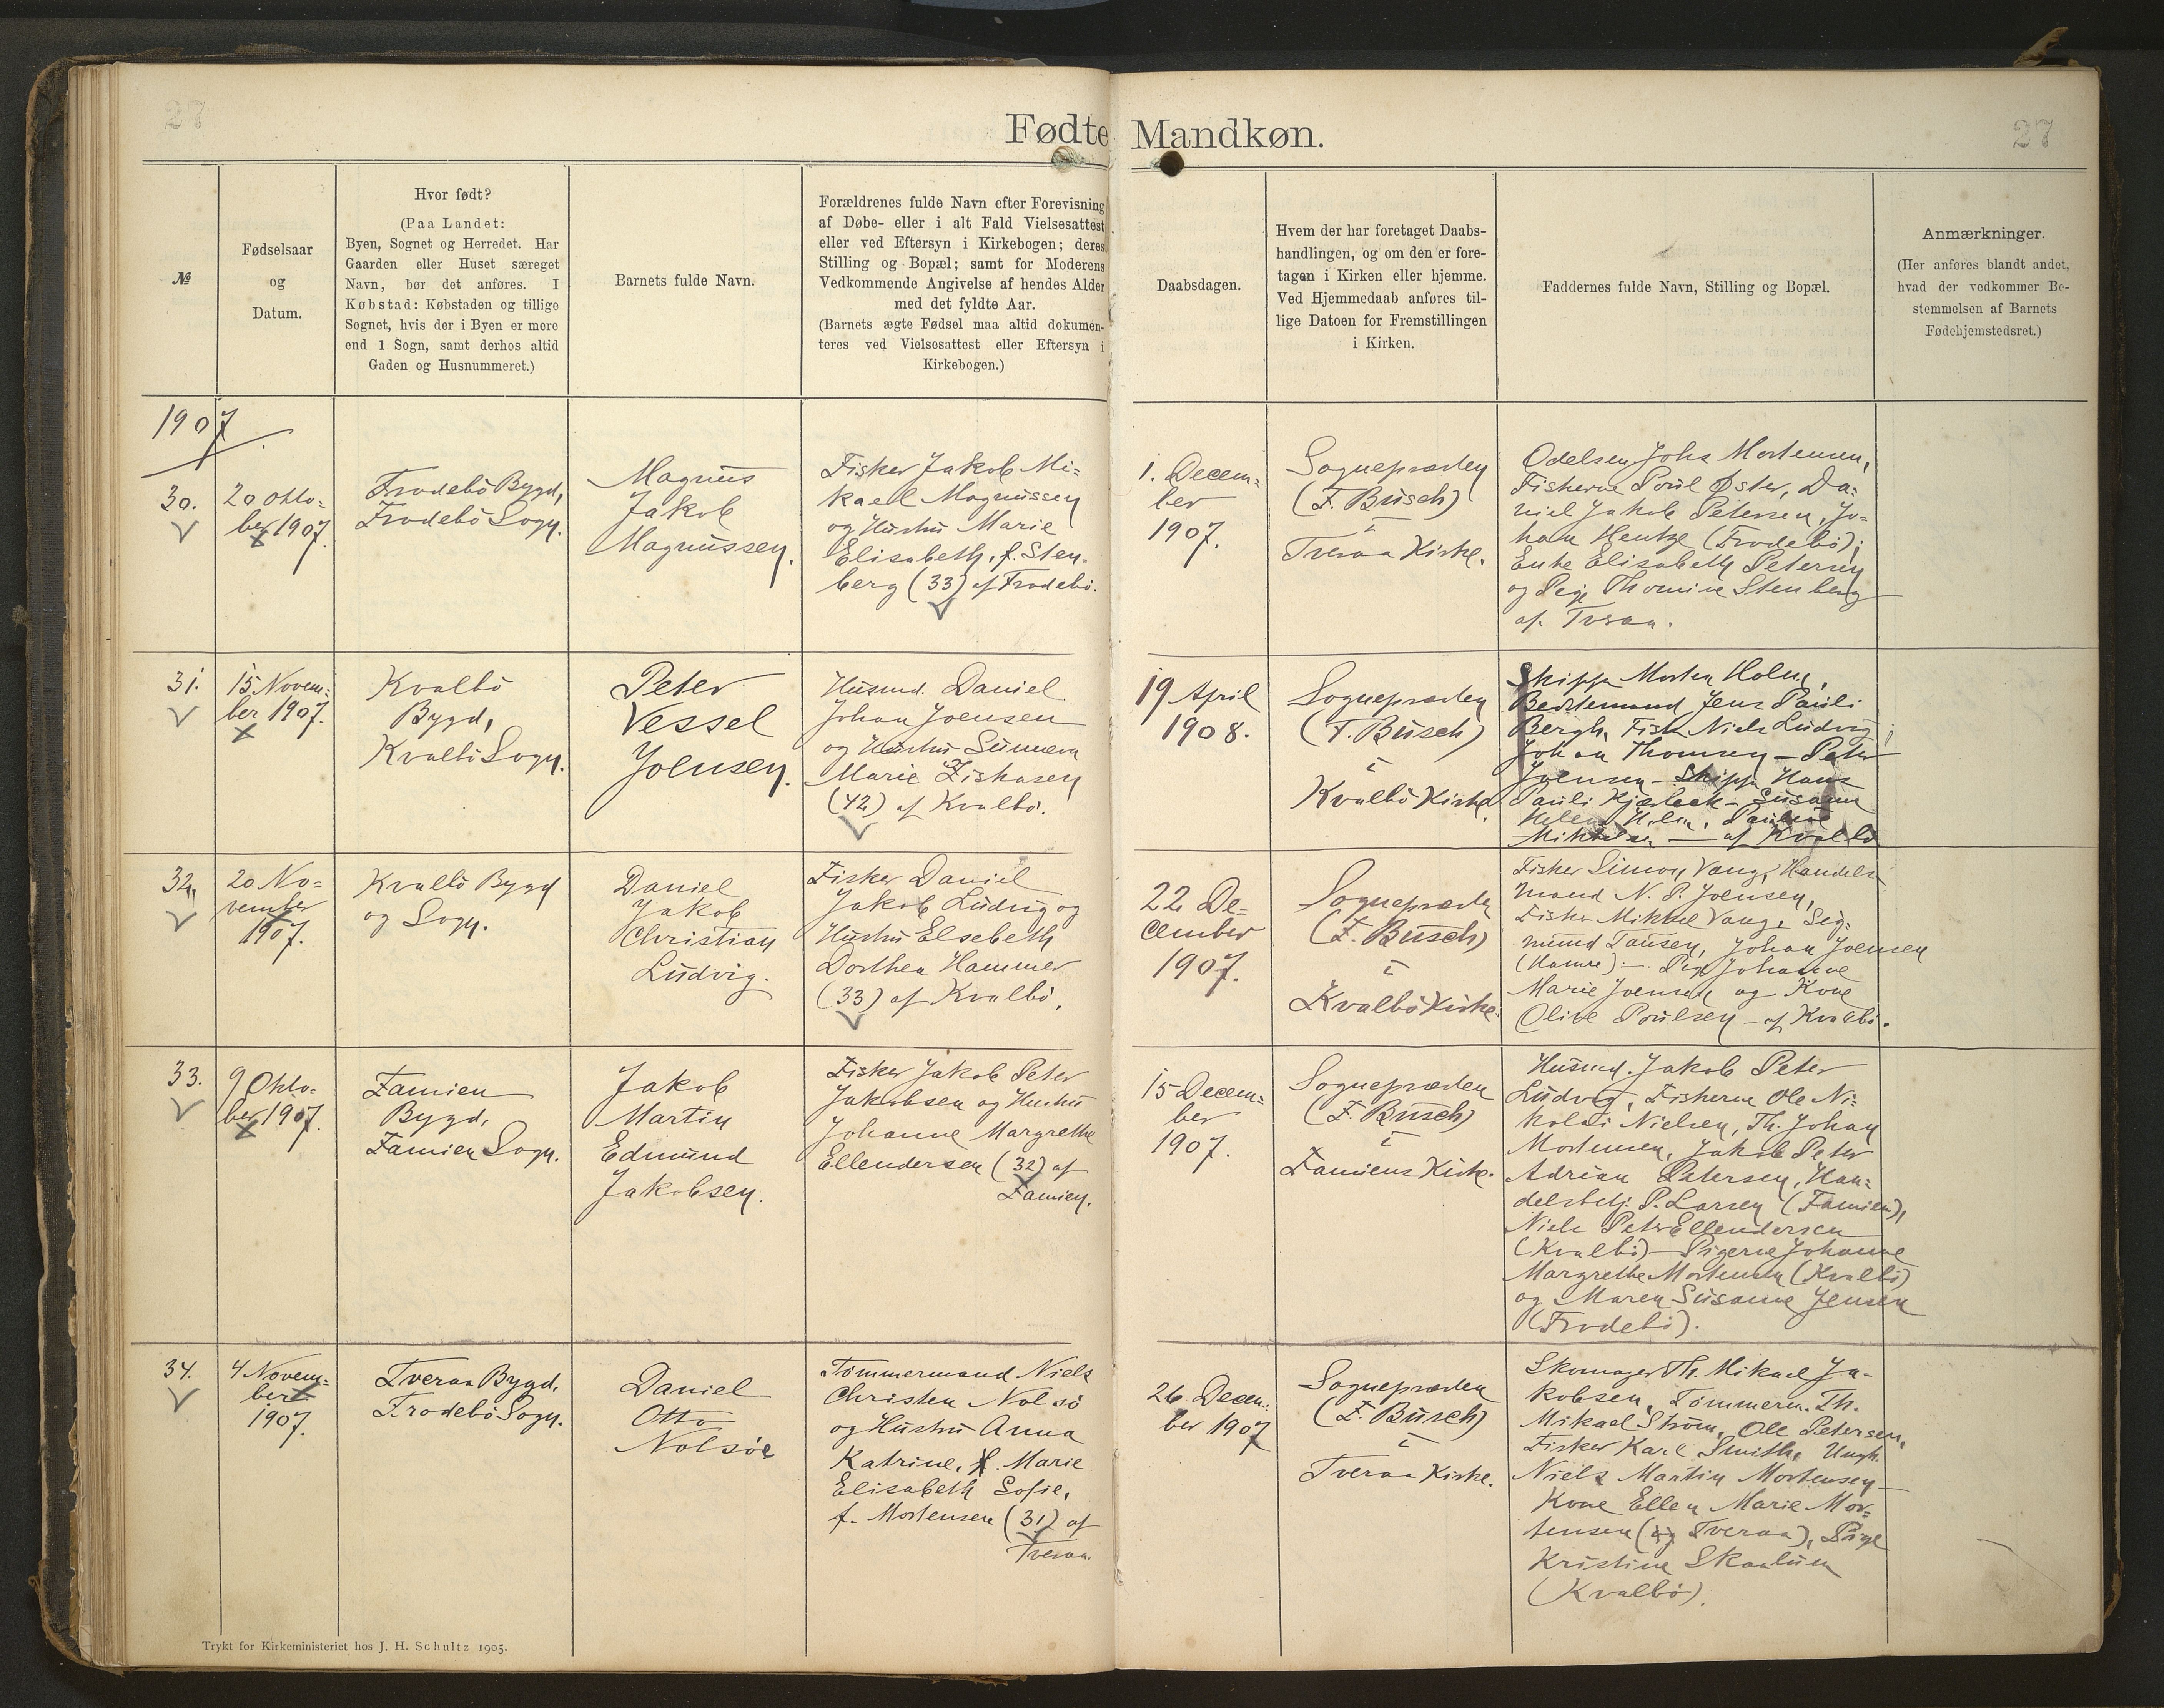 27
Fødte Mandkøn.
27
№
Fødselsaar
og
Datum.
Hvor født?
(Paa Landet:
Byen, Sognet og Herredet. Har
Gaarden eller Huset særeget
Navn, bør det anføres. I
Købstad: Købstaden og tillige
Sognet, hvis der i Byen er mere
end 1 Sogn, samt derhos altid
Gaden og Husnummeret.)
Barnets fulde Navn.
Forældrenes fulde Navn efter Forevisning
af Døbe- eller i alt Fald Vielsesattest
eller ved Eftersyn i Kirkebogen; deres
Stilling og Bopæl; samt for Moderens
Vedkommende Angivelse af hendes Alder
med det fyldte Aar.
(Barnets ægte Fødsel maa altid dokumen-
teres ved Vielsesattest eller Eftersyn i
Kirkebogen.)
Daabsdagen.
Hvem der har foretaget Daabs-
handlingen, og om den er fore-
tagen i Kirken eller hjemme.
Ved Hjemmedaab anføres til-
lige Datoen for Fremstillingen
i Kirken.
Faddernes fulde Navn, Stilling og Bopæl.
Anmærkninger.
(Her anføres blandt andet,
hvad der vedkommer Be-
stemmelsen af Barnets
Fødehjemstedsret.)
1907
30.
20 Okto-
ber 1907.
Frodebö Bygd,
Frodebö Sogn.
Magnus
Jakob
Magnussen.
Fisker Jakob Mi-
kael Magnussen
og Hustru Marie
Elisabeth, f. Sten-
berg (33) af Frodebö.
1. Decem-
ber
1907.
Sognepræsten
(F. Busch)
i
Tveraa Kirke.
Johs Mortensen,
Fiskerne Poul Øster, Da-
niel Jakob Petersen, Jo-
han Hentze (Frodebö);
Enke Elisabeth Petersen
og Pige Thomine Stenberg
af Tveraa.
31.
15 Novem-
ber 1907.
Kvalbö
Bygd,
Kvalbö Sogn.
Peter
Vessel
Joensen.
Husmd. Daniel
Johan Joensen
og Hustru Sunneva
Marie
(42) af Kvalbö.
19 April
1908.
Sognepræsten
(F. Busch)
i
Kvalbö Kirke.
Skipper Morten Holm,
Jens Pauli
Bergh, Fisk. Niels Ludvig
Johan Thomsen – Peter
Joensen – Skipper Hans
Pauli Kjærbech – Susanne
Helene Holm, Pauline
Mikkelsen – af Kvalbö
32.
20 No-
vember
1907.
Kvalbö Bygd
og Sogn.
Daniel
Jakob
Christian
Ludvig.
Fisker Daniel
Jakob Ludvig og
Hustru Elsebeth
Dorthea Hammer
(33) af Kvalbö.
22 De-
cember
1907.
Sognepræsten
(F. Busch)
i
Kvalbö Kirke.
Fisker Simon Vang, Handels-
mand N. P. Joensen,
Fisker Mikkel Vang, Sig-
mund Tausen, Johan Joensen
– Pige Johanne
Marie Joensen og Kone
Olive Poulsen – af Kvalbö.
33.
9 Okto-
ber 1907.
Famien
Bygd,
Famien Sogn.
Jakob
Martin
Edmund
Jakobsen.
Fisker Jakob Peter
Jakobsen og Hustru
Johanne Margrethe
Ellendersen (32) af
Famien.
15 Decem-
ber
1907.
Sognepræsten
(F. Busch)
i
Famiens Kirke.
Husmd. Jakob Peter
Ludvig, Fiskerne Ole Ni-
kolai Nielsen, Th. Johan
Mortensen, Jakob Peter
Adrian Petersen, Han-
delsbetj. P. Larsen (Famien),
Niels Peter Ellendersen
(Kvalbö) – Pigerne Johanne
Margrethe Mortensen (Kvalbö)
og Maren Susanne Jensen
(Frodebö).
34.
4 Novem-
ber
1907.
Tveraa Bygd,
Frodebö Sogn.
Daniel
Otto
Nolsöe
Tømmermand Niels
Christen Nolsö
og Hustru Anna
Katrine, f. Marie
Elisabeth Sofie,
f. Mortensen (31) af
Tveraa.
26 Decem-
ber 1907
Sognepræsten
(F. Busch)
i
Tveraa Kirke.
Skomager Th. Mikael Ja-
kobsen, Tömmerm. Th.
Mikael Ström, Ole Petersen,
Fisker Karl Smith, Ungk.
Niels Martin Mortensen –
Kone Ellen Marie Mor-
tensen (af Tveraa), Pige
Kristine Skaalum
(Kvalbö).
Trykt for Kirkeministeriet hos J. H. Schultz 1905.